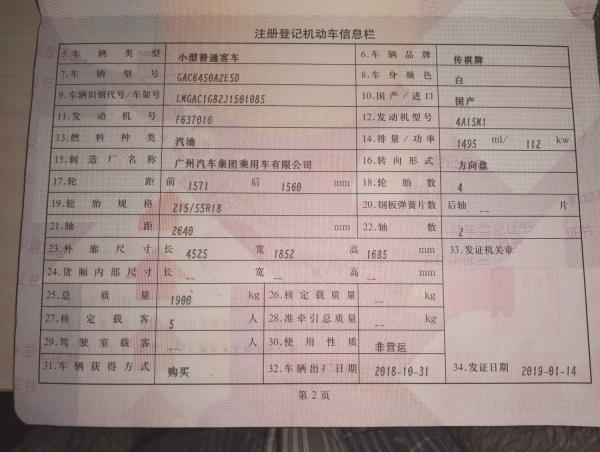 注册登记机动车信息栏
5.车辆类型 小型普通客车 6.车辆品牌 传祺牌
7.车辆型号 GAC6450A2E5D 8.车身颜色 白
9.车辆识别代号/车架号 LMGAC1G82J1501085 10.国产/进口 国产
11.发动机号 F637010 12.发动机型号 4A15M1
13.燃料种类 汽油 14.排量/功率 1495 ml/ 112 kw
15.制造厂名称 广州汽车集团乘用车有限公司 16.转向形式 方向盘
17.轮距 前 1571 后 1560 mm 18.轮胎数 4
19.轮胎规格 215/55R18 20.钢板弹簧片数 后轴 -- 片
21.轴距 2640 mm 22.轴数 2
23.外廓尺寸 长 4525 宽 1852 高 1685 mm 33.发证机关章
24.货厢内部尺寸 长 -- 宽 -- 高 -- mm
25.总质量 1900 kg 26.核定载质量 -- kg
27.核定载客 5 人 28.准牵引总质量 -- kg
29.驾驶室载客 -- 人 30.使用性质 非营运
31.车辆获得方式 购买 32.车辆出厂日期 2018-10-31 34.发证日期 2019-01-14
第2页